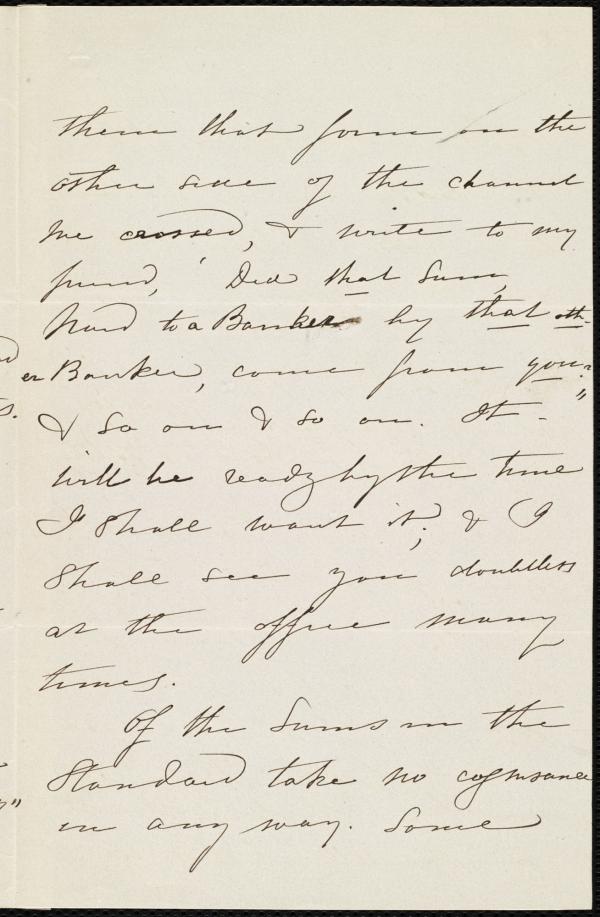 them that form on the
other side of the channel
we crossed, & write to my
friend, "Did that sum,
paid to a Banker by that oth-
er Banker, come from you?"
& so on & so on. It
will be ready by the time
I shall want it; & I
shall see you doubtless
at the office many
times.
Of the sums in the
Standard take no cognisance
in any way. Some